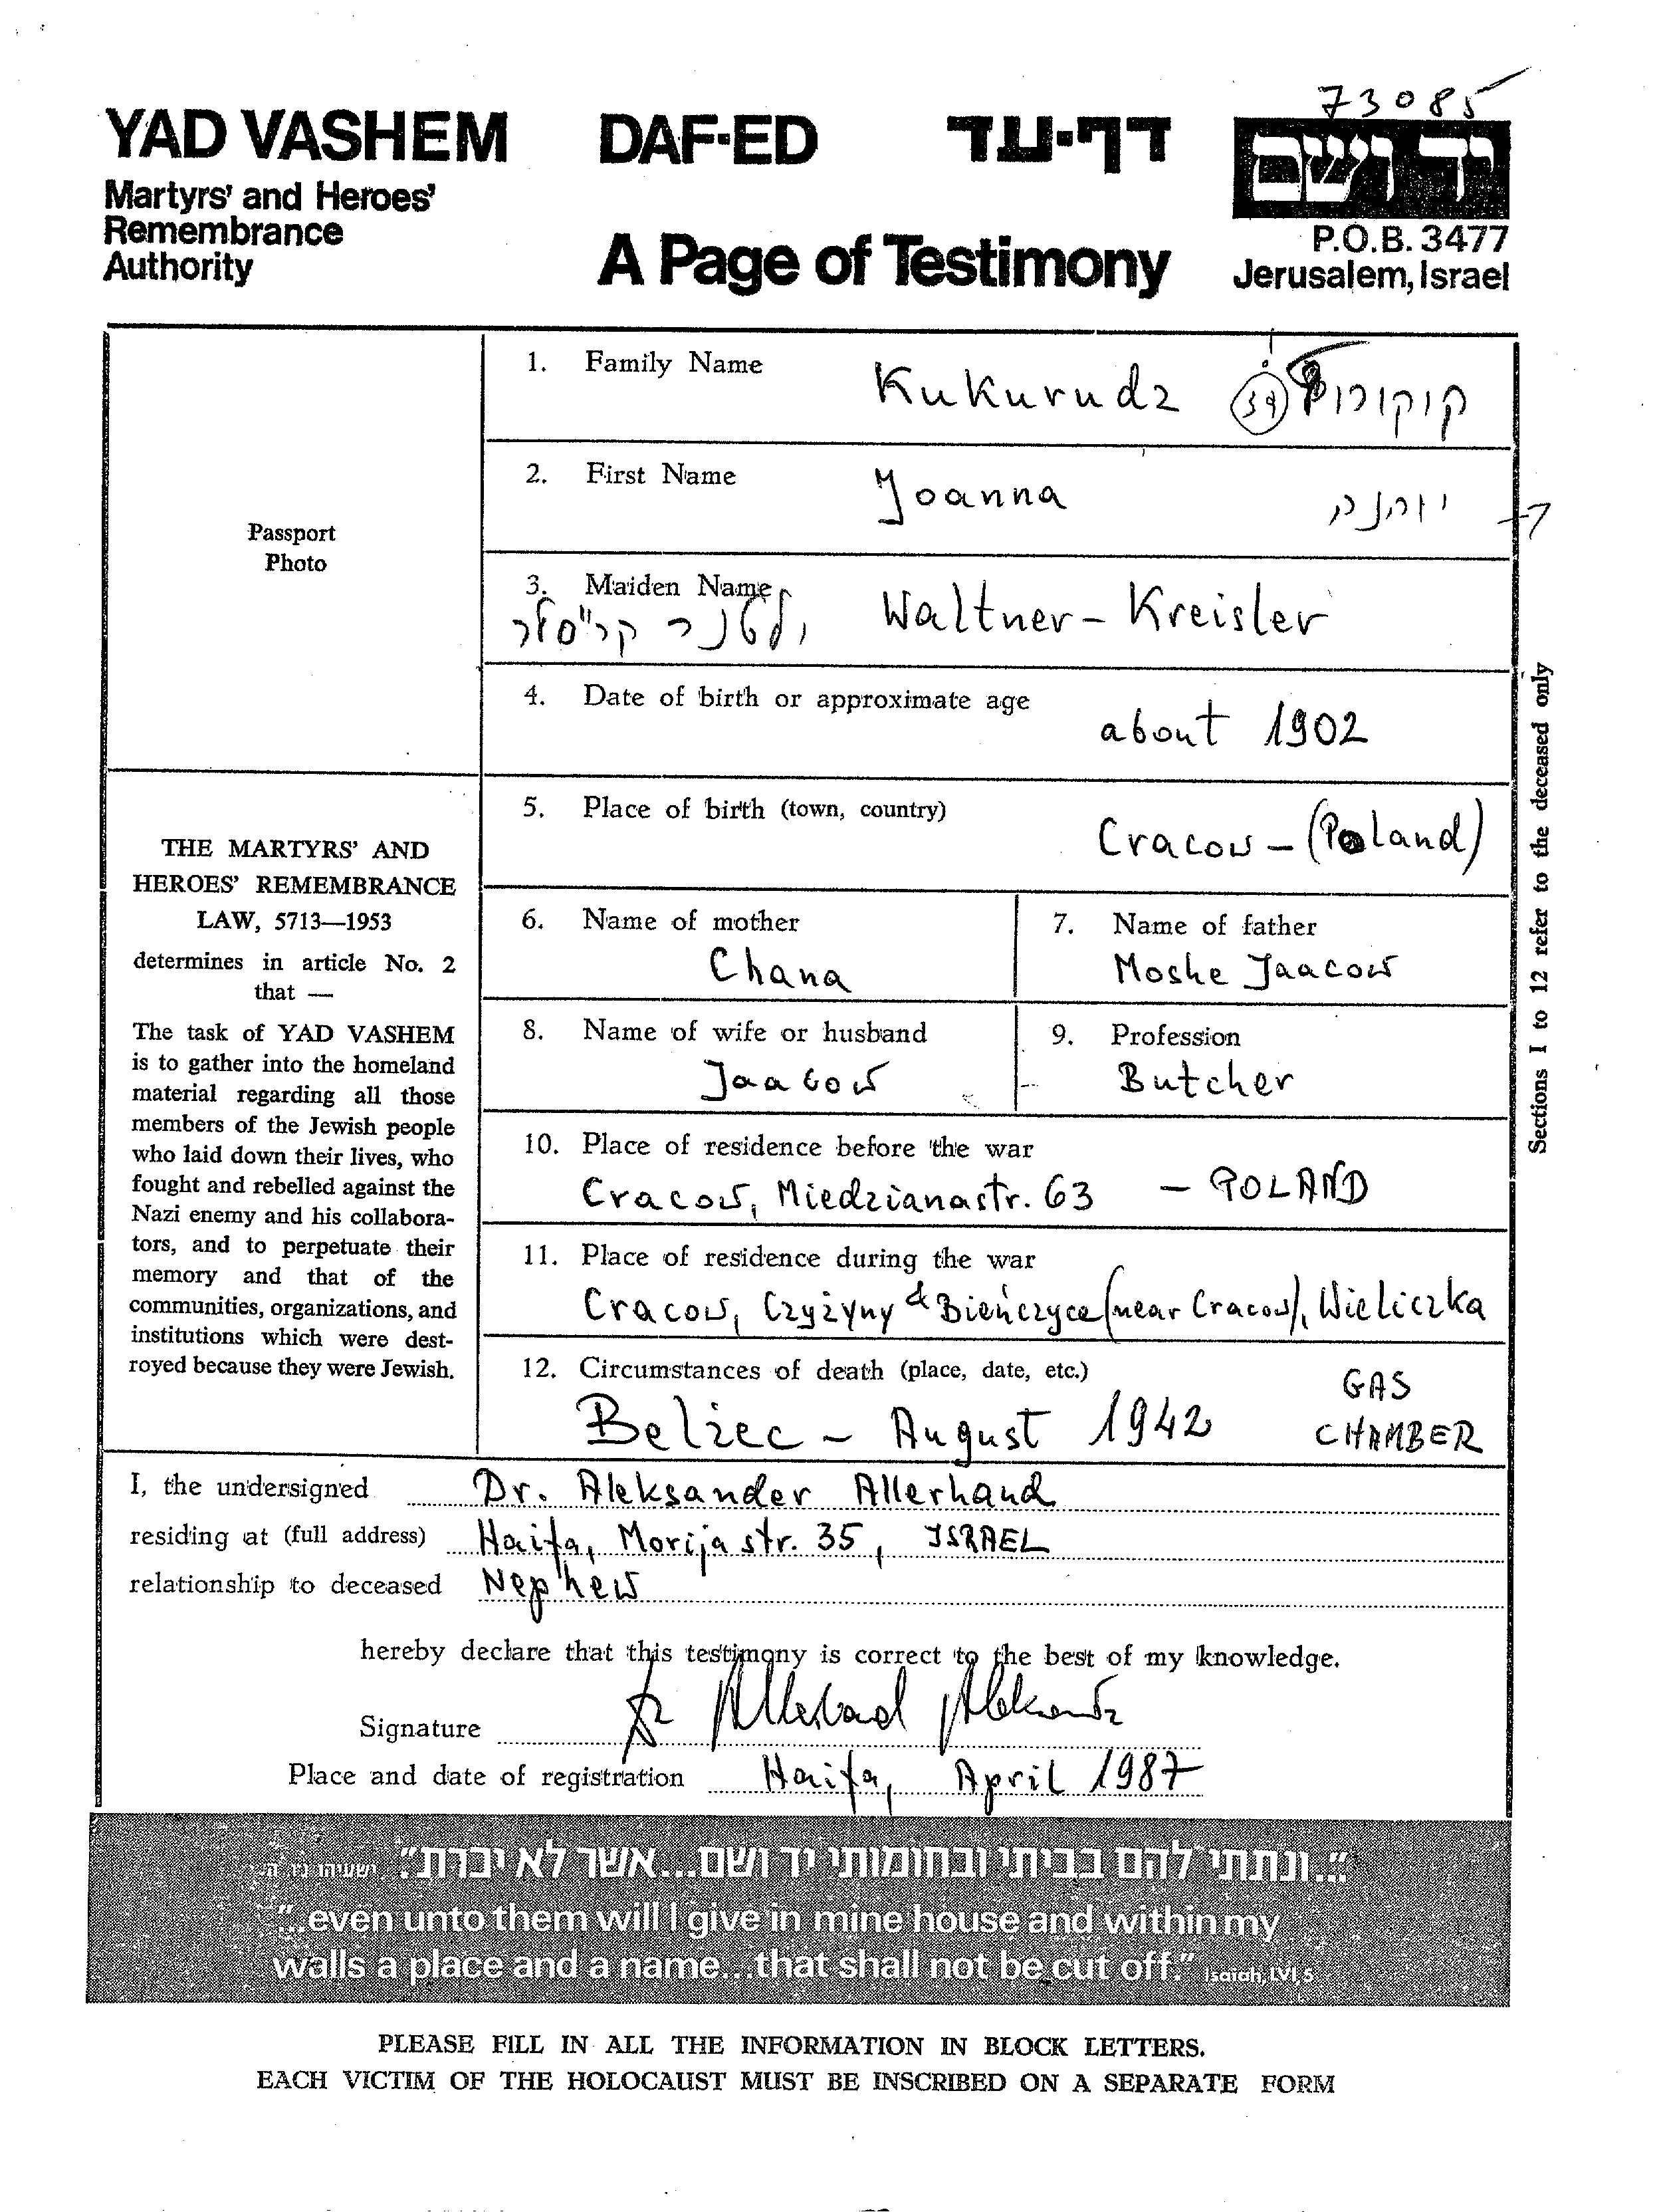 73085
YAD VASHEM DAF-ED דף-עד ידושם
Martyrs' and Heroes'
Remembrance
Authority
A Page of Testimony
P.O.B. 3477
Jerusalem, Israel
1. Family Name Kukurudz
2. First Name Joanna יוהנה
Passport
Photo
3. Maiden Name Waltner - Kreisler
ולטנר קרייסלר
4. Date of birth or approximate age about 1902
5. Place of birth (town, country) Cracow - (Poland)
6. Name of mother Chana
7. Name of father Moshe Jaacow
8. Name of wife or husband Jaacow
9. Profession Butcher
10. Place of residence before the war
Cracow, Miedzianastr. 63 - POLAND
11. Place of residence during the war
Cracow, Czyżyny & Bieńczyce (near Cracow), Wieliczka
12. Circumstances of death (place, date, etc.)
Belzec - August 1942 GAS CHAMBER
Sections 1 to 12 refer to the deceased only
THE MARTYRS' AND
HEROES' REMEMBRANCE
LAW, 5713—1953
determines in article No. 2
that —
The task of YAD VASHEM
is to gather into the homeland
material regarding all those
members of the Jewish people
who laid down their lives, who
fought and rebelled against the
Nazi enemy and his collabora-
tors, and to perpetuate their
memory and that of the
communities, organizations, and
institutions which were dest-
royed because they were Jewish.
I, the undersigned Dr. Aleksander Allerhand
residing at (full address) Haifa, Morija str. 35, ISRAEL
relationship to deceased Nephew
hereby declare that this testimony is correct to the best of my knowledge.
Signature
Place and date of registration Haifa, April 1987
"...ונתתי להם בביתי ובחומותי יד ושם...אשר לא יכרת." ישעיהו נו, ה
"...even unto them will I give in mine house and within my
walls a place and a name...that shall not be cut off." Isaiah, LVI, 5
PLEASE FILL IN ALL THE INFORMATION IN BLOCK LETTERS.
EACH VICTIM OF THE HOLOCAUST MUST BE INSCRIBED ON A SEPARATE FORM